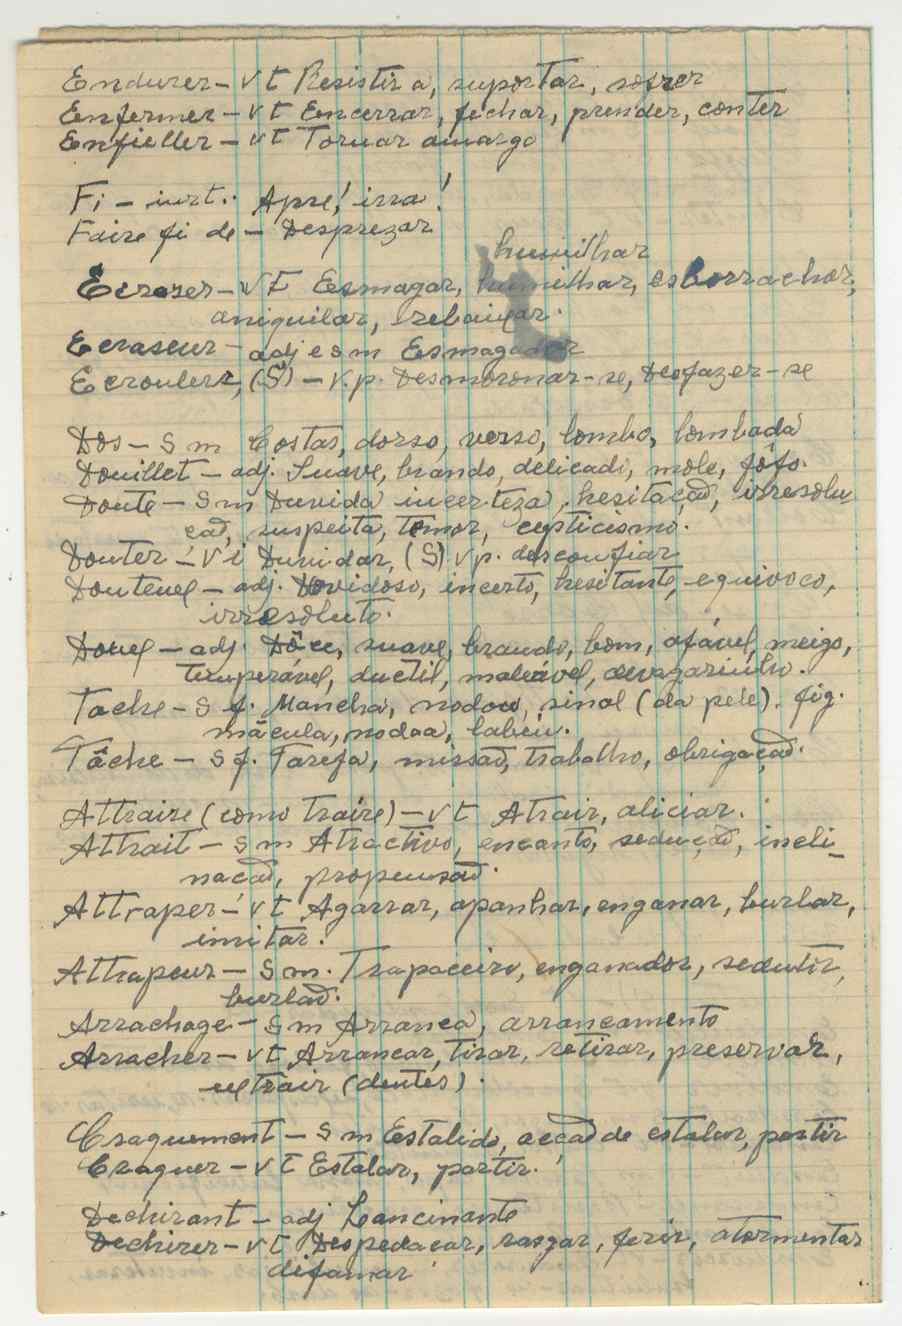 Endurer - v t Resistir a, suportar, sofrer
Enfermer - v t Encerrar, fechar, prender, conter
Enfieller - v t Tornar amargo
Fi - int.: Apre! irra!
Faire fi de - Desprezar
humilhar
Ecraser - v t Esmagar, humilhar, esborrachar,
aniquilar, rebaixar.
Ecraseur - adj e s m Esmagador
Ecrouler, (S') - v.p. Desmoronar-se, Desfazer-se
Dos - s m Costas, dorso, verso, lombo, lombada
Douillet - adj. Suave, brando, delicado, mole, fôfo.
Doute - s m Duvida incerteza, hesitação, irresolu
ção, suspeita, temor, cepticismo.
Douter - v i Duvidar, (S') v p. desconfiar
Douteux - adj. Dovidoso, incerto, hesitante, equivoco,
irresoluto.
Doux - adj. Dôce, suave, brando, bom, afável, meigo,
temperável, ductil, maleável, devagarinho.
Tache - s f. Mancha, nodoa, sinal (da pele). fig.
mácula, nodoa, labéu.
Tâche - s f. Tarefa, missão, trabalho, obrigação.
Attraire (como traire) - v t Atrair, aliciar.
Attrait - s m Atractivo, encanto, sedução, incli-
nação, propensão.
Attraper - v t Agarrar, apanhar, enganar, burlar,
imitar.
Attrapeur - s m. Trapaceiro, enganador, sedutor,
burlão.
Arrachage - s m Arranca, arrancamento
Arracher - v t Arrancar, tirar, retirar, preservar,
extrair (dentes).
Craquement - s m Estalido, acção de estalar, partir
Craquer - v t Estalar, partir.
Dechirant - adj Lancinante
Dechirer - v t Despedaçar, rasgar, ferir, atormentar
difamar